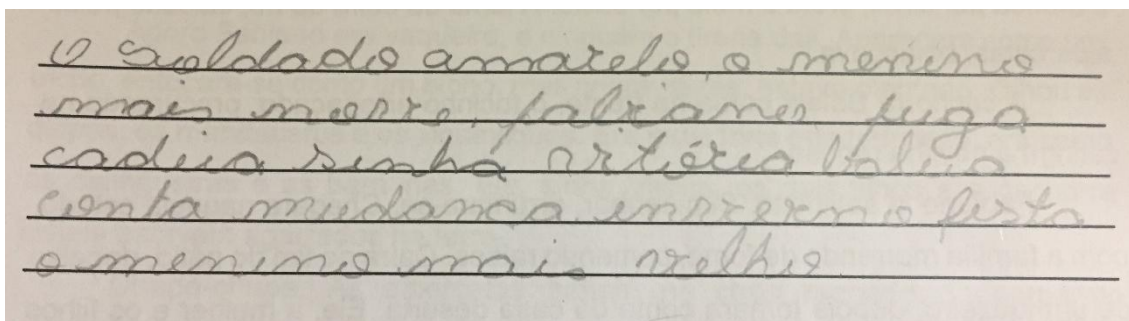 O soldado amarelo, o menino
mais fabiano, fuga
cadeia sinha vitória baleia
conta mudança inverno festa
o menino mais velho